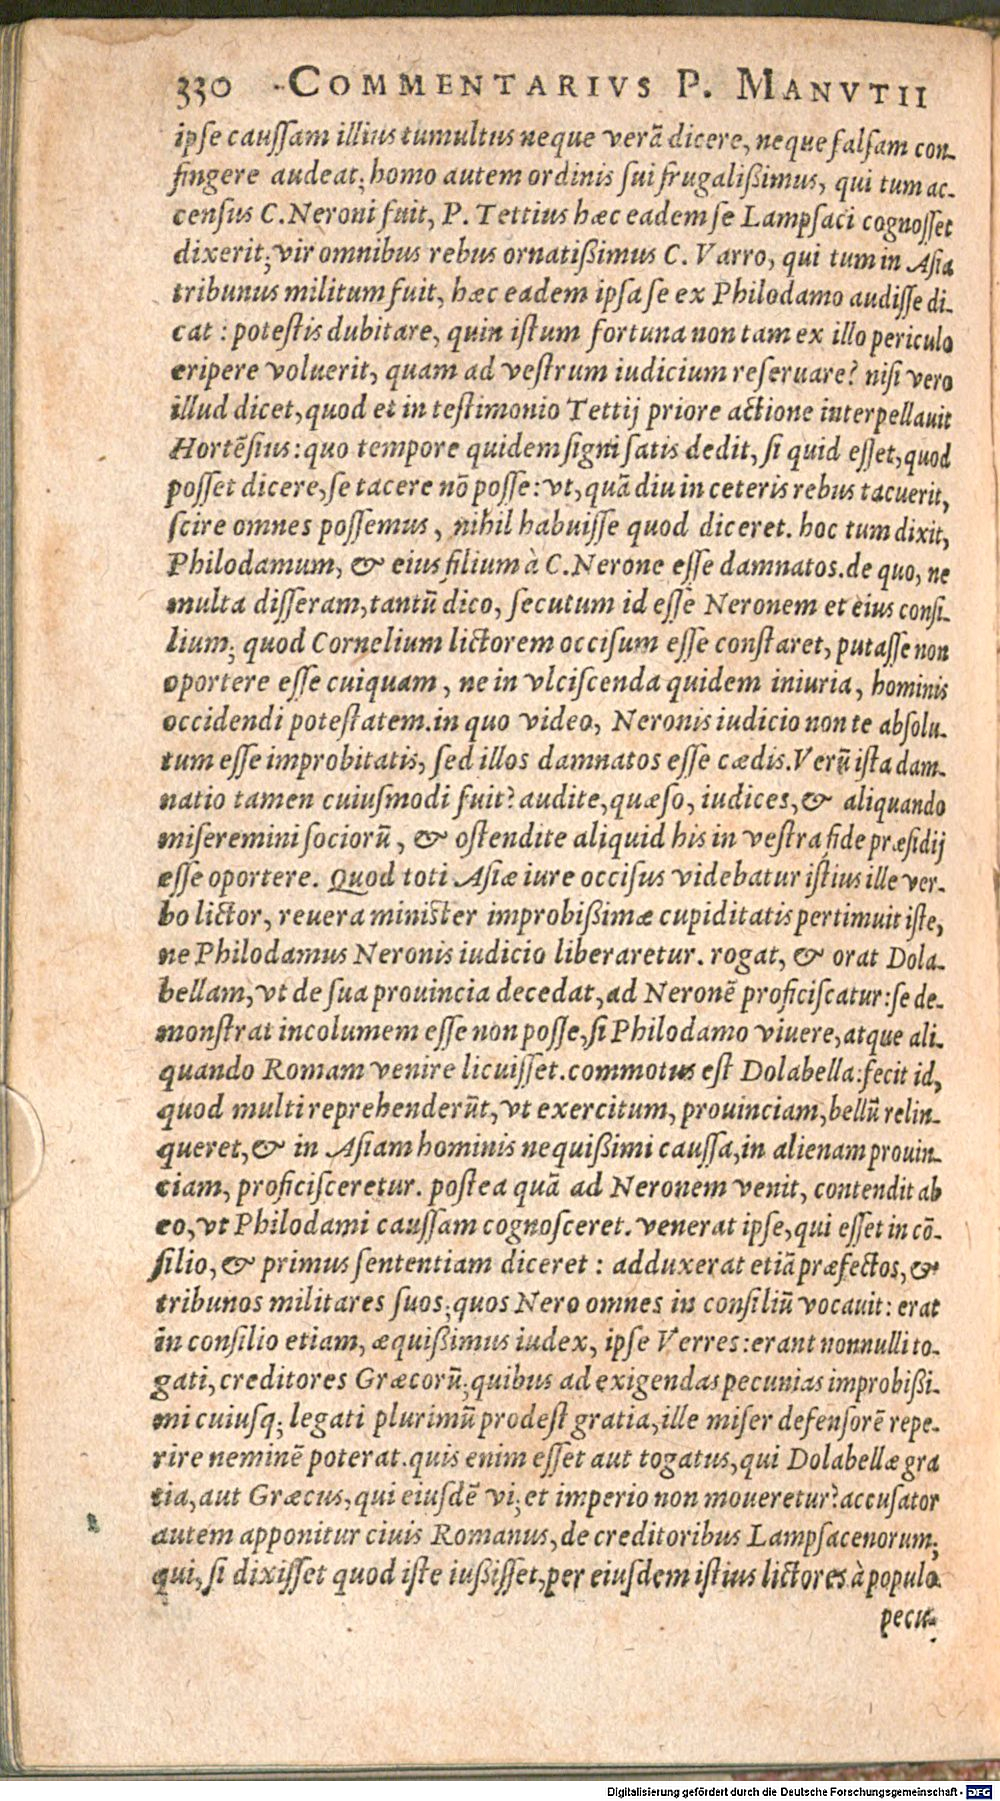 330 COMMENTARIVS P. MANVTII
ipse caussam illius tumultus neque verā dicere, neque falsam con-
fingere audeat; homo autem ordinis sui frugalißimus, qui tum ac-
census C. Neroni fuit, P. Tettius hæc eadem se Lampsaci cognosset
dixerit; vir omnibus rebus ornatißimus C. Varro, qui tum in Asia
tribunus militum fuit, hæc eadem ipsa se ex Philodamo audisse di-
cat: potestis dubitare, quin istum fortuna non tam ex illo periculo
eripere voluerit, quam ad vestrum iudicium reseruare? nisi vero
illud dicet, quod et in testimonio Tettij priore actione interpellauit
Hortēsius: quo tempore quidem signi satis dedit, si quid esset, quod
posset dicere, se tacere nō posse: vt, quā diu in ceteris rebus tacuerit,
scire omnes possemus, nihil habuisse quod diceret. hoc tum dixit,
Philodamum, & eius filium à C. Nerone esse damnatos. de quo, ne
multa disseram, tantū dico, secutum id esse Neronem et eius consi-
lium; quod Cornelium lictorem occisum esse constaret, putasse non
oportere esse cuiquam, ne in vlciscenda quidem iniuria, hominis
occidendi potestatem. in quo video, Neronis iudicio non te absolu-
tum esse improbitatis, sed illos damnatos esse cædis. Verū ista dam-
natio tamen cuiusmodi fuit? audite, quæso, iudices, & aliquando
miseremini sociorū, & ostendite aliquid his in vestra fide præsidij
esse oportere. Quod toti Asiæ iure occisus videbatur istius ille ver-
bo lictor, reuera minister improbißimæ cupiditatis pertimuit iste,
ne Philodamus Neronis iudicio liberaretur. rogat, & orat Dola-
bellam, vt de sua prouincia decedat, ad Neronē proficiscatur: se de-
monstrat incolumem esse non posse, si Philodamo viuere, atque ali-
quando Romam venire licuisset. commotus est Dolabella: fecit id,
quod multi reprehenderūt, vt exercitum, prouinciam, bellū relin-
queret, & in Asiam hominis nequißimi caussa, in alienam prouin-
ciam, proficisceretur. postea quā ad Neronem venit, contendit ab
eo, vt Philodami caussam cognosceret. venerat ipse, qui esset in cō-
silio, & primus sententiam diceret: adduxerat etiā præfectos, &
tribunos militares suos; quos Nero omnes in consiliū vocauit: erat
in consilio etiam, æquißimus iudex, ipse Verres: erant nonnulli to-
gati, creditores Græcorū; quibus ad exigendas pecunias improbißi-
mi cuiusq; legati plurimū prodest gratia, ille miser defensorē repe-
rire neminē poterat. quis enim esset aut togatus, qui Dolabellæ gra
tia, aut Græcus, qui eiusdē vi; et imperio non moueretur? accusator
autem apponitur ciuis Romanus, de creditoribus Lampsacenorum;
qui, si dixisset quod iste iußisset, per eiusdem istius lictores à populo
pecu-
Digitalisierung gefördert durch die Deutsche Forschungsgemeinschaft - DFG